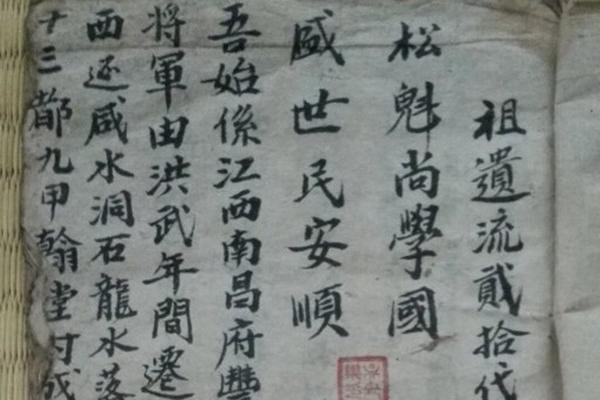 祖遺流貳拾代
松魁尚學國
盛世民安順
吾始係江西南昌府豐
將軍由洪武年間遷
西延咸水洞石龍水落
十三都九甲翰堂村成